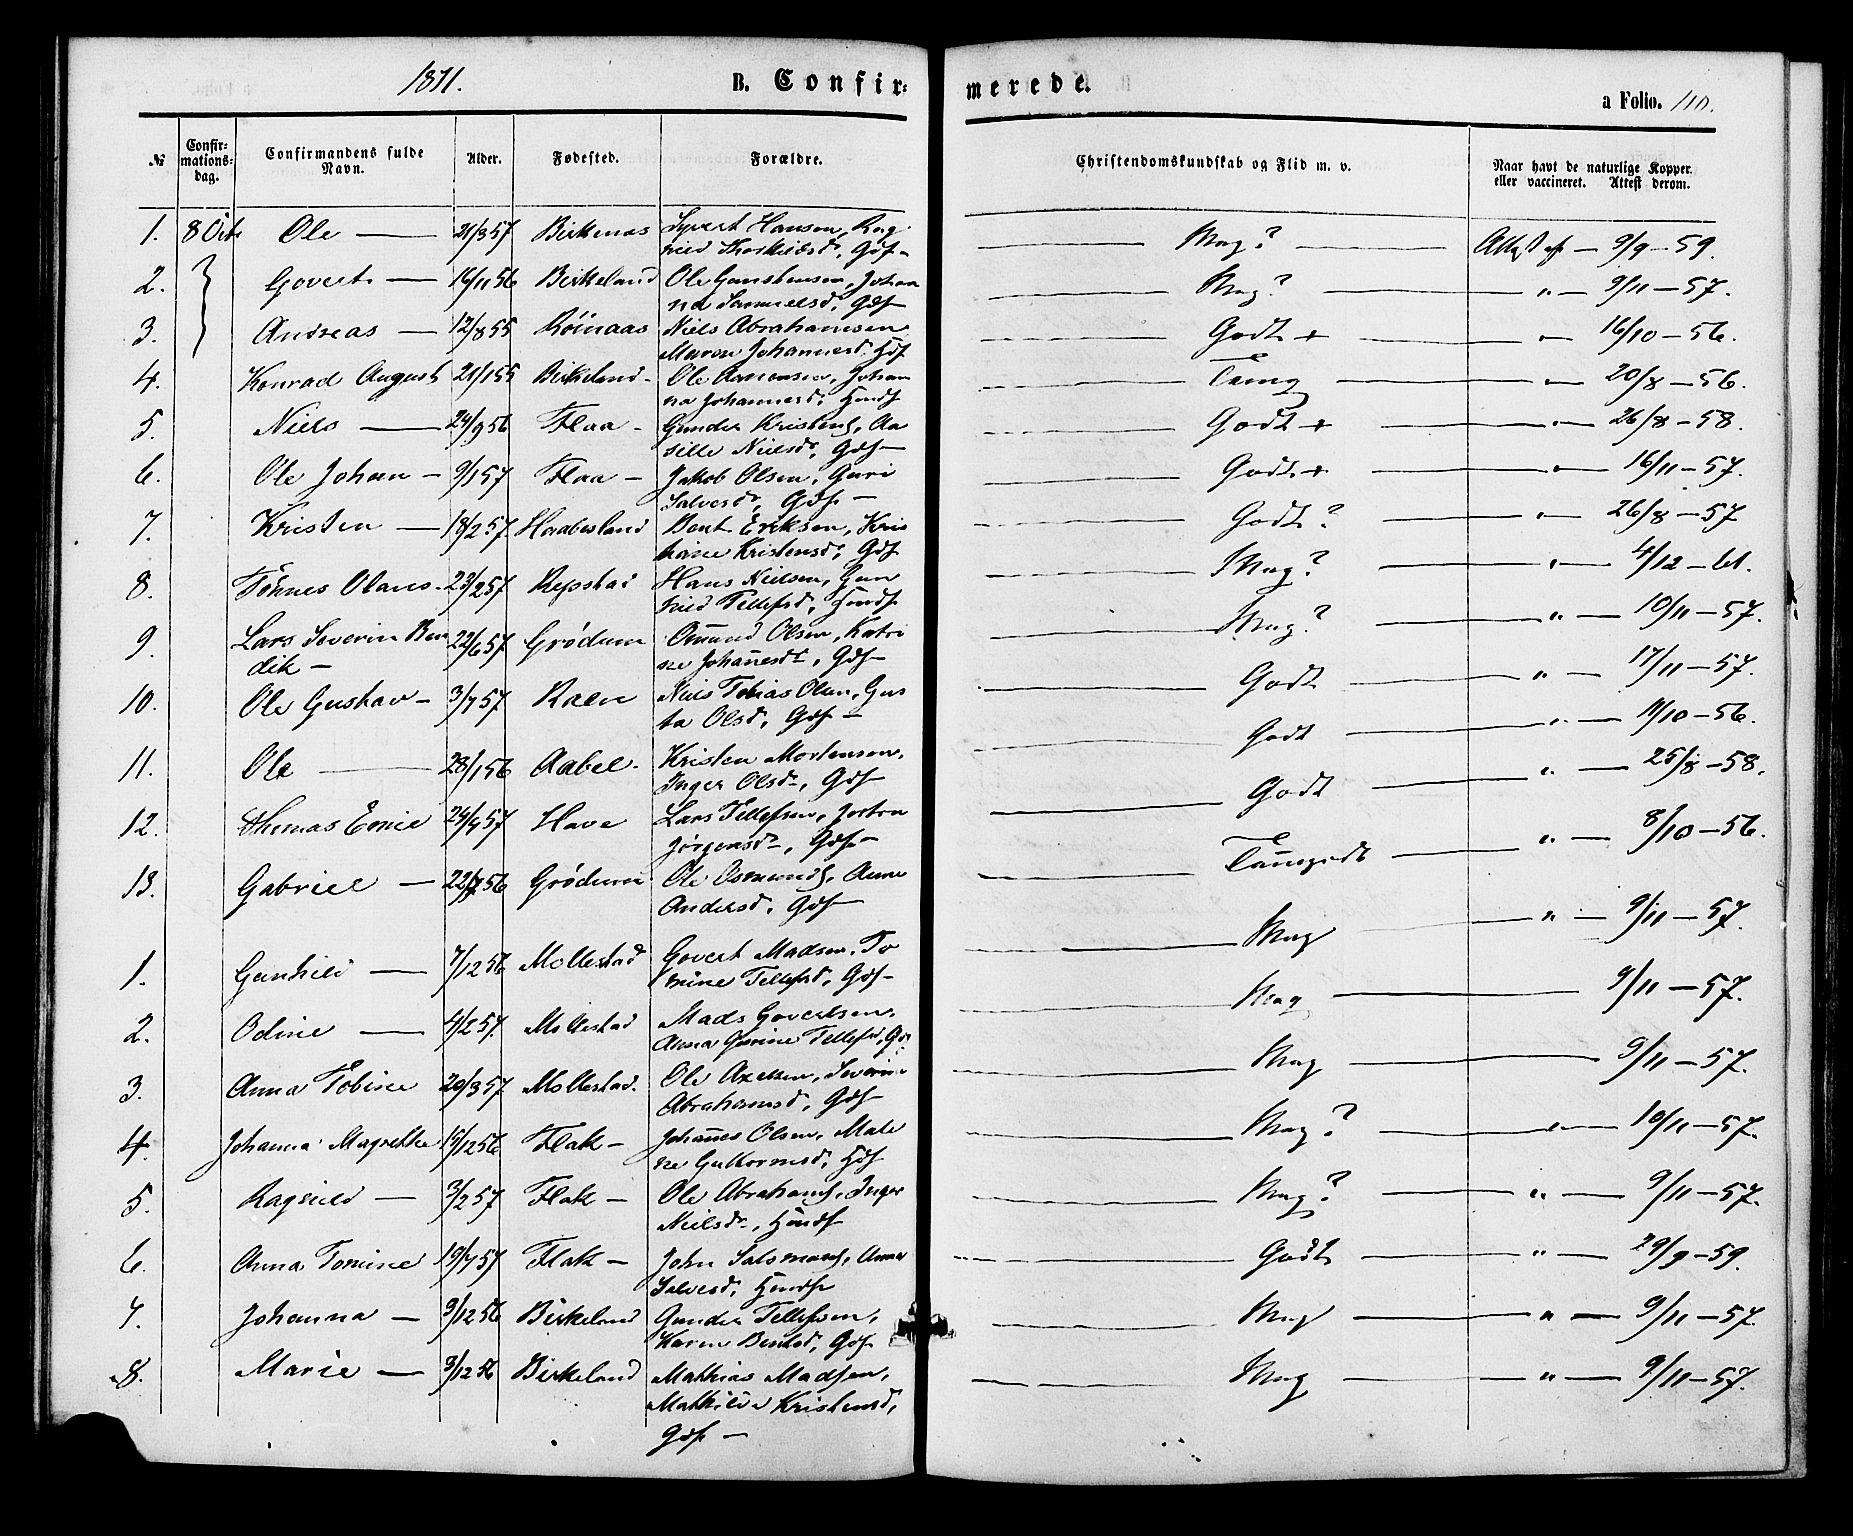 1871. B. Confir= merede. a Folio. 110.
№ Confir=mations=dag. Confirmandens fulde Navn. Alder. Fødested. Forældre. Christendomskundskab og Flid m. v. Naar havt de naturlige Kopper eller vaccineret. Attest derom.
1. 8 Octb Ole — 21/3 57 Birkenes Syvert Hansen, Rag- Mag? — Attest af — 9/9 - 59.
nild Thorkildsd, Gdf —
2. Govert — 16/11 56 Birkeland Ole Gunstensen, Johan Mag? " 9/11 - 57.
na Samuelsd, Gdf
3. Andreas — 12/8 55 Röinaas Niels Abrahamsen Godt + " 16/10 - 56.
Maren Johannesd. Gdf
4. Konrad August 21/1 55 Birkeland - Ole Aanensen, Johan Temg " 20/8 - 56.
na Johannesd, Hmdf
5. Niels — 24/9 56 Flaa - Gunder Kristens, Aa Godt + " 26/8 - 58.
sille Nielsd, Gdf —
6. Ole Johan — 9/1 57 Flaa — Jakob Olsen, Guri Godt + " 16/11 - 57.
Salvesd, Gdf —
7. Kristen — 18/2 57. Haabesland Bent Eriksen, Kris Godt? " 26/8 - 57
tiane Kristensd, Gdf
8. Tönnes Olaus - 23/2 57 Repstad Hans Nielsen, Gun Mag? " 4/12 - 61.
nild Tellefsd, Hmdf
9. Lars Severin Ben 22/6 57 Grødum Omund Olsen, Katri Mag? " 10/11 - 57.
dik — ne Johañesd, Gdf —
10. Ole Gustav — 3/7 57 Raen Niels Tobias Olsen, Gus Godt " 17/11 - 57.
ta Olsd, Gdf —
11. Ole — 28/1 56 Aabel. Kristen Mortensen, Godt " 11/10 - 56.
Inger Olsd, Gdf
12. Thomas Emil 24/4 57 Have Lars Tellefsen, Godt " 25/8 - 58.
Jörgensd, Gdf —
13. Gabriel — 22/7 56 Grødum Ole Osmunds, Anne Temgodt " 8/10 - 56.
Andersd, Gdf —
1. Gunhild — 7/12 56 Mollestad Govert Madsen, To Mag " 9/11 - 57.
mine Tellefsd, Gdf —
2. Odine — 4/2 57. Mollestad Mads Govertsen, Mag — 9/11 - 57.
Anna Gurine Tellefsd, Gdf
3. Anna Tobine 20/3 57 Mollestad. Ole Axelsen, Severine Mag — 9/11 - 57.
Abrahamsd, Gdf
4. Johanna Magrethe 15/12 56 Flak — Johañes Olsen, Male Mag? " 10/11 - 57.
ne Guttormsd, Gdf
5. Ragnild — 3/2 57 Flak — Ole Abrahams, Inger Mag? " 9/11 - 57.
Nielsd, Hmdf
6. Anna Tomine 19/7 57 Flak — John Salomons, Anne Godt " 29/9 - 59.
Salvesd, Hmdf
7. Johanna — 9/12 56 Birkeland Gunder Tellefsen, Mag " 9/11 - 57.
Karen Bentsd, Gdf
8. Marie — 3/12 56 Birkeland Mathias Madsen, Mag " 9/11 - 57.
Mathilde Kristensd,
Gdf —